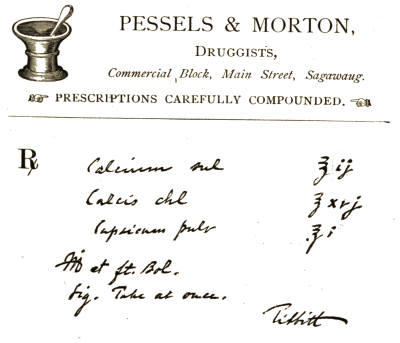 PESSELS & MORTON,
DRUGGISTS,
Commercial Block, Main Street, Sagawaug.
PRESCRIPTIONS CAREFULLY COMPOUNDED.
℞ Calcium sul ʒ ij
Calcis chl ʒ xvj
Capsicum pulv ʒ i
M et ft. Bol.
Sig. Take at once.
Tibbitt